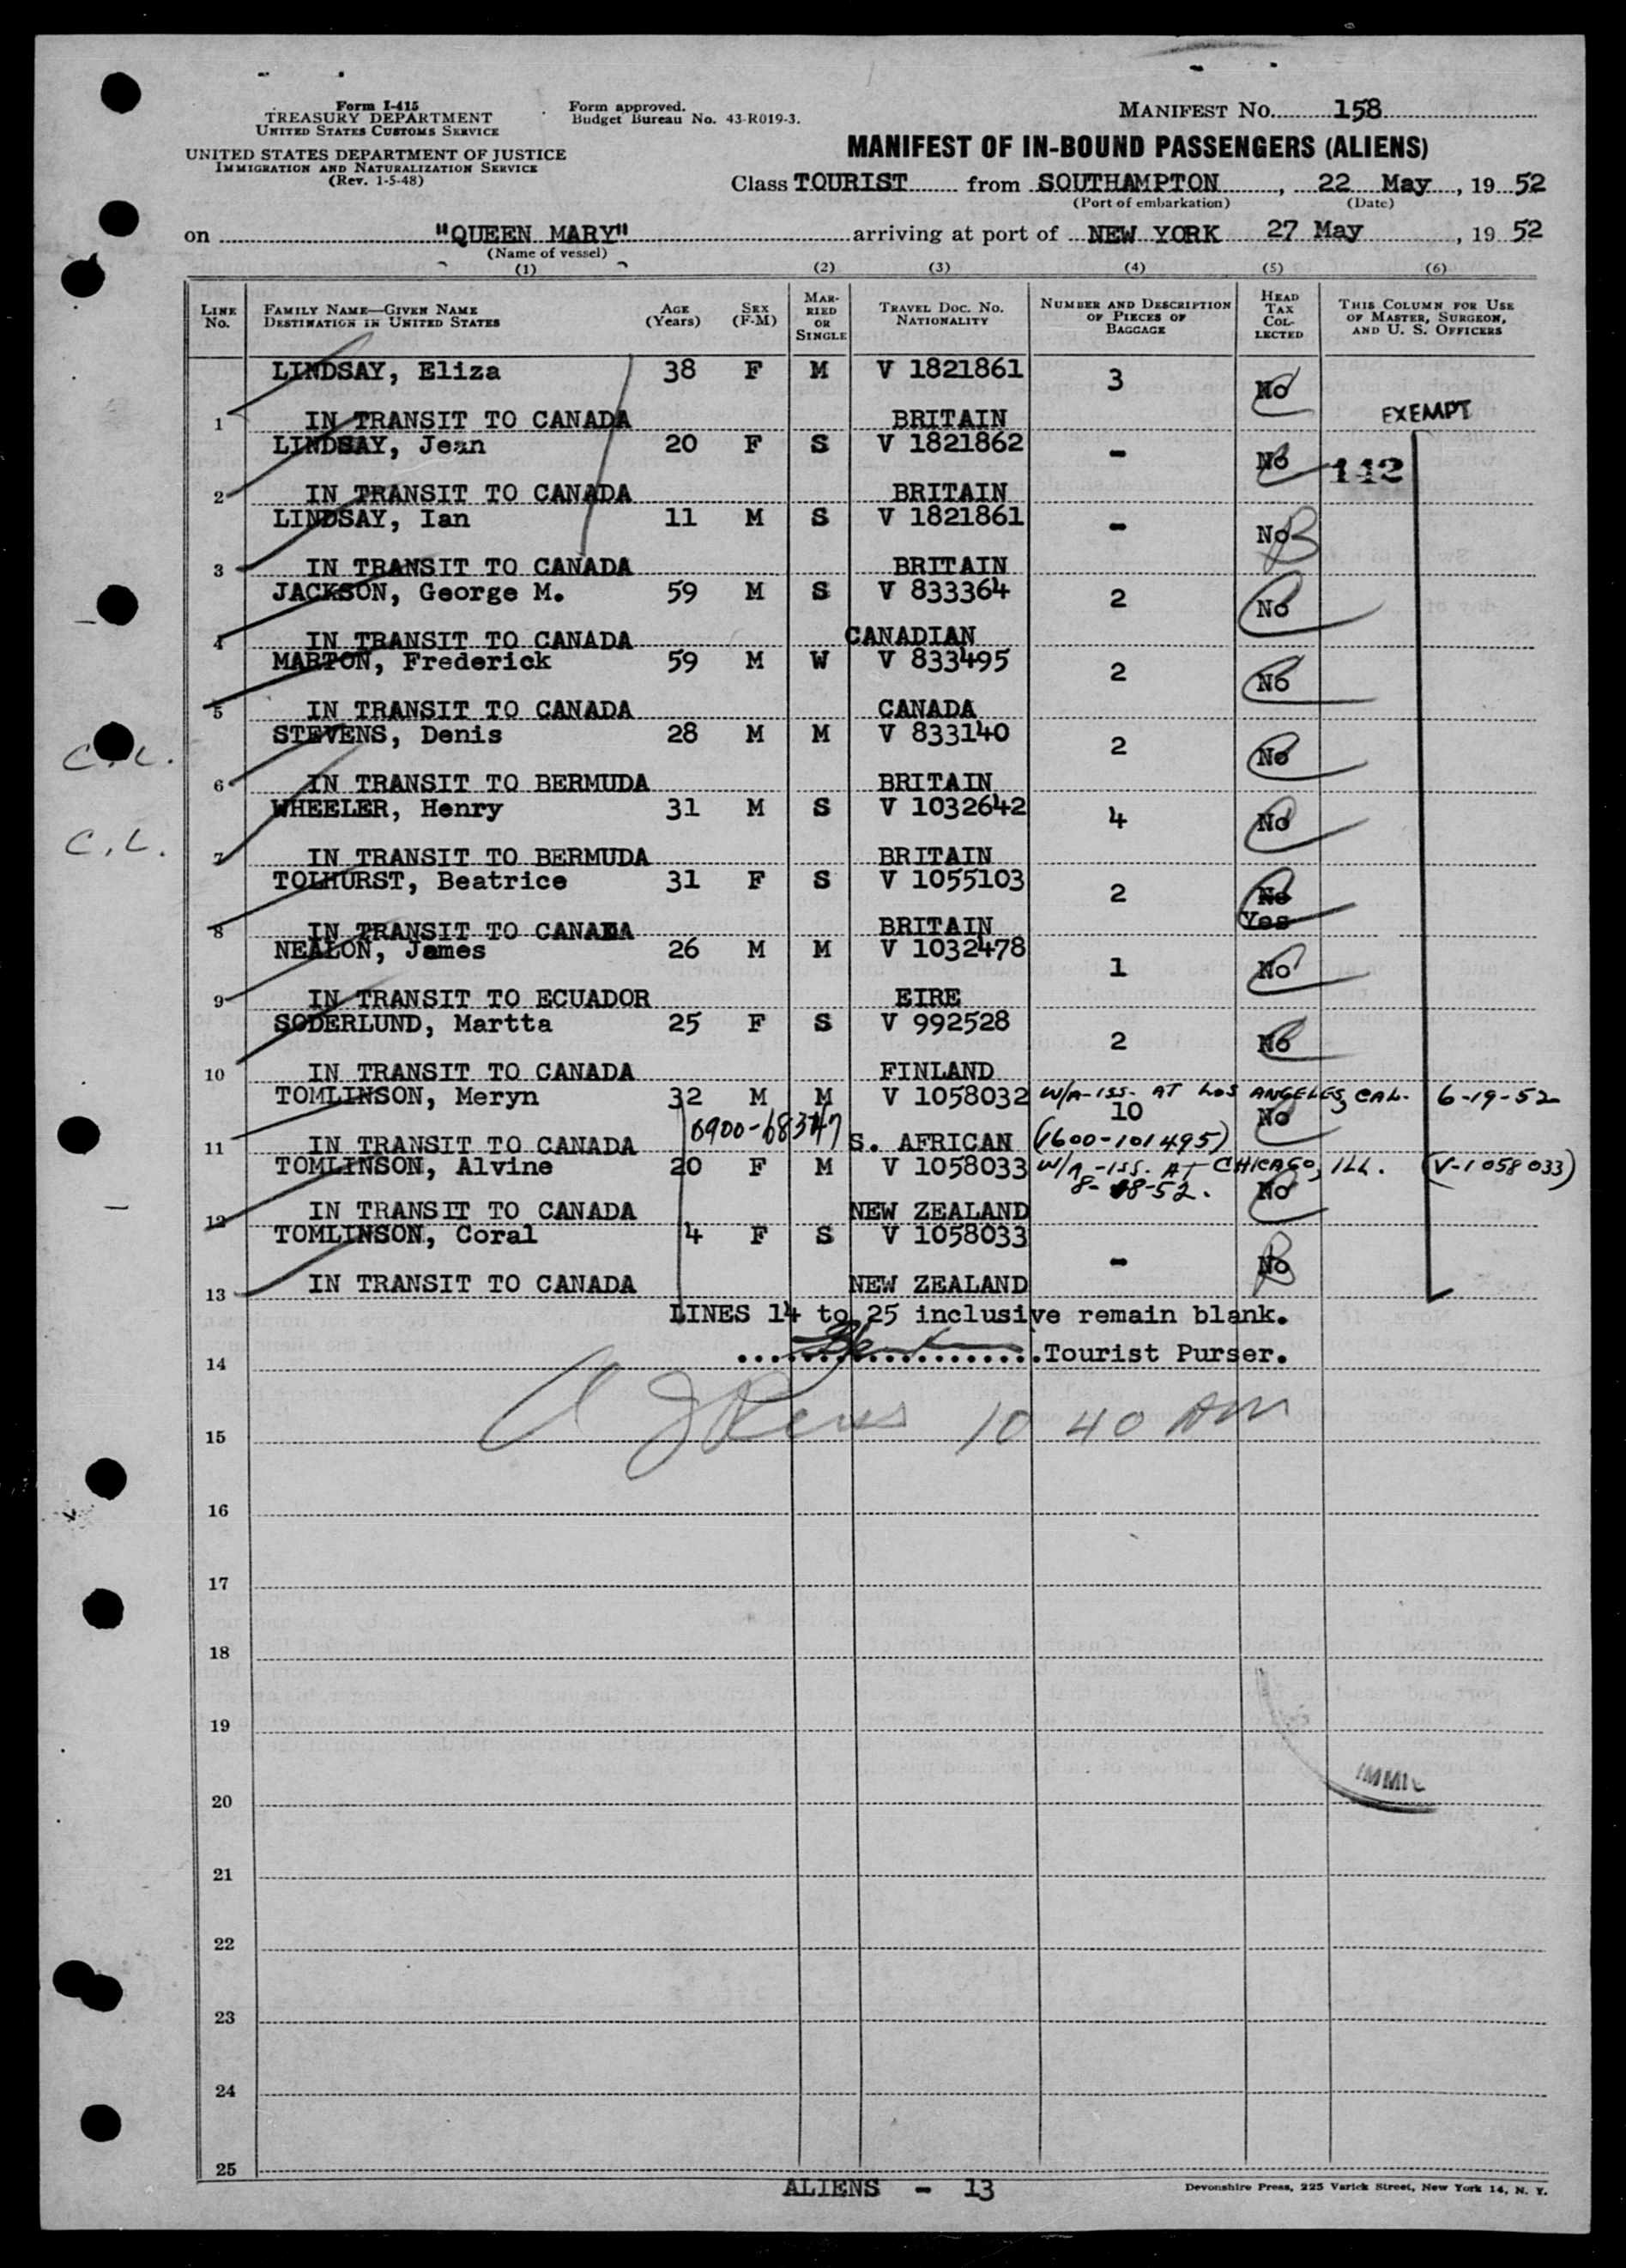 Form I-415
TREASURY DEPARTMENT
UNITED STATES CUSTOMS SERVICE
UNITED STATES DEPARTMENT OF JUSTICE
IMMIGRATION AND NATURALIZATION SERVICE
(Rev. 1-5-48)
Form approved.
Budget Bureau No. 43-R019-3.
MANIFEST No. 158
MANIFEST OF IN-BOUND PASSENGERS (ALIENS)
Class TOURIST from SOUTHAMPTON, 22 May, 19 52
(Port of embarkation) (Date)
on "QUEEN MARY" arriving at port of NEW YORK 27 May, 19 52
(Name of vessel)
(1) (2) (3) (4) (5) (6)
LINE No. FAMILY NAME—GIVEN NAME DESTINATION IN UNITED STATES AGE (Years) SEX (F-M) MARRIED OR SINGLE TRAVEL DOC. NO. NATIONALITY NUMBER AND DESCRIPTION OF PIECES OF BAGGAGE HEAD TAX COLLECTED THIS COLUMN FOR USE OF MASTER, SURGEON, AND U. S. OFFICERS
LINDSAY, Eliza 38 F M V 1821861 3 No
1 IN TRANSIT TO CANADA BRITAIN EXEMPT
LINDSAY, Jean 20 F S V 1821862 - No 142
2 IN TRANSIT TO CANADA BRITAIN
LINDSAY, Ian 11 M S V 1821861 - No
3 IN TRANSIT TO CANADA BRITAIN
JACKSON, George M. 59 M S V 833364 2 No
4 IN TRANSIT TO CANADA CANADIAN
MARTON, Frederick 59 M W V 833495 2 No
5 IN TRANSIT TO CANADA CANADA
C.L. STEVENS, Denis 28 M M V 833140 2 No
6 IN TRANSIT TO BERMUDA BRITAIN
WHEELER, Henry 31 M S V 1032642 4 No
C.L. 7 IN TRANSIT TO BERMUDA BRITAIN
TOLHURST, Beatrice 31 F S V 1055103 2 No Yes
8 IN TRANSIT TO CANADA BRITAIN
NEALON, James 26 M M V 1032478 1 No
9 IN TRANSIT TO ECUADOR EIRE
SODERLUND, Martta 25 F S V 992528 2 No
10 IN TRANSIT TO CANADA FINLAND
TOMLINSON, Meryn 32 M M V 1058032 W/A-ISS. AT LOS ANGELES, CAL. 6-19-52 10 No
11 IN TRANSIT TO CANADA 0900-68347 S. AFRICAN (1600-101495)
TOMLINSON, Alvine 20 F M V 1058033 W/A-ISS. AT CHICAGO, ILL. (V-1058033) 8-18-52. No
12 IN TRANSIT TO CANADA NEW ZEALAND
TOMLINSON, Coral 4 F S V 1058033 - No
13 IN TRANSIT TO CANADA NEW ZEALAND
LINES 14 to 25 inclusive remain blank.
14 Tourist Purser.
15 10 40 AM
16
17
18
19
IMMIG
20
21
22
23
24
25
ALIENS - 13
Devonshire Press, 225 Varick Street, New York 14, N. Y.